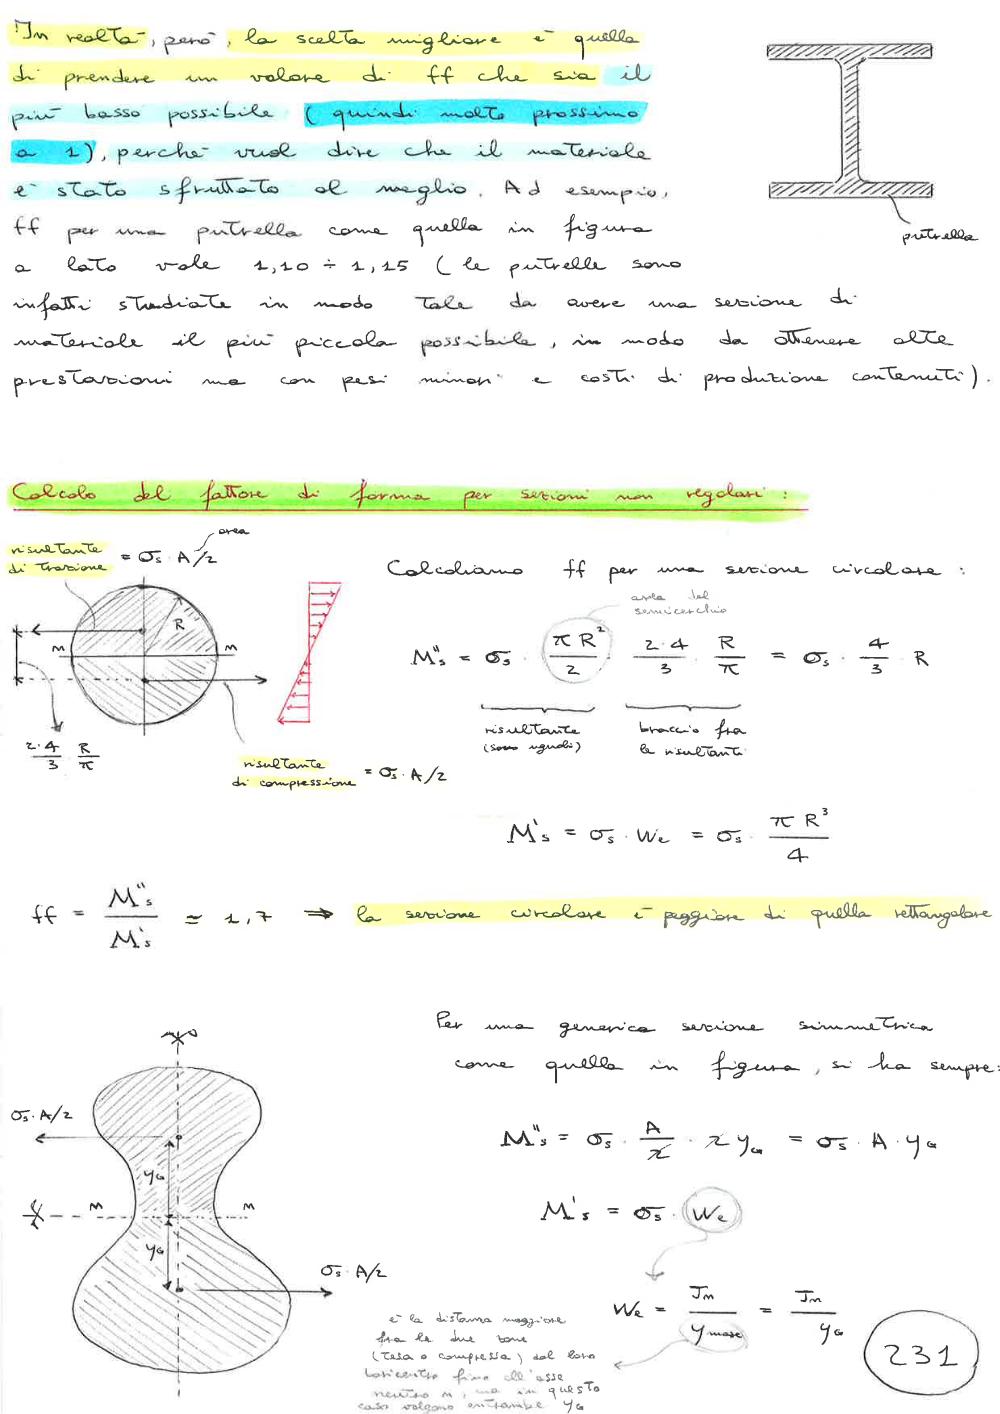 In realtà, però, la scelta migliore è quella
di prendere un valore di ff che sia il
più basso possibile (quindi molto prossimo
a 1), perché vuol dire che il materiale
è stato sfruttato al meglio. Ad esempio,
ff per una putrella come quella in figura
a lato vale 1,10 ÷ 1,15 (le putrelle sono
infatti studiate in modo tale da avere una sezione di
materiale il più piccola possibile, in modo da ottenere alte
prestazioni ma con pesi minori e costi di produzione contenuti).
putrella
Calcolo del fattore di forma per sezioni non regolari:
risultante
di trazione = σs · A/2
area
R
m
m
2·4/3 R/π
risultante
di compressione = σs · A/2
Calcoliamo ff per una sezione circolare:
area del
semicerchio
M''s = σs · πR²/2 · 2·4/3 · R/π = σs · 4/3 R
risultante
(sono uguali)
braccio fra
le risultanti
M's = σs · We = σs · πR³/4
ff = M''s/M's ≃ 1,7 ⇒ la sezione circolare è peggiore di quella rettangolare
Per una generica sezione simmetrica
come quella in figura, si ha sempre:
σs · A/2
yG
m
m
yG
σs · A/2
M''s = σs · A/2 · 2 yG = σs · A · yG
M's = σs · We
We = Jm/ymax = Jm/yG
è la distanza maggiore
fra le due zone
(tesa o compressa) dal loro
baricentro fino all'asse
neutro m, ma in questo
caso valgono entrambe yG
231